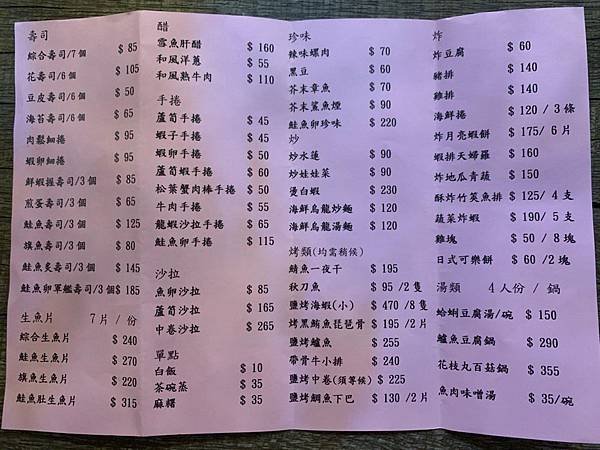 壽司
綜合壽司/7個 $ 85
花壽司/6個 $ 105
豆皮壽司/6個 $ 50
海苔壽司/6個 $ 65
肉鬆細捲 $ 65
蝦卵細捲 $ 65
鮮蝦握壽司/3個 $ 85
煎蛋壽司/3個 $ 65
鮭魚壽司/3個 $ 125
旗魚壽司/3個 $ 80
鮭魚炙壽司/3個 $ 145
鮭魚卵軍艦壽司/3個 $ 185
生魚片 7片 / 份
綜合生魚片 $ 240
鮭魚生魚片 $ 270
旗魚生魚片 $ 220
鮭魚肚生魚片 $ 315
醋
雪魚肝醋 $ 160
和風洋蔥 $ 55
和風熟牛肉 $ 110
手捲
蘆筍手捲 $ 45
蝦子手捲 $ 45
蝦卵手捲 $ 50
蘆筍蝦手捲 $ 60
松葉蟹肉棒手捲 $ 50
牛肉手捲 $ 55
龍蝦沙拉手捲 $ 65
鮭魚卵手捲 $ 115
沙拉
魚卵沙拉 $ 85
蘆筍沙拉 $ 165
中卷沙拉 $ 265
單點
白飯 $ 10
茶碗蒸 $ 35
麻糬 $ 35
珍味
辣味螺肉 $ 70
黑豆 $ 60
芥末章魚 $ 70
芥末鯊魚煙 $ 90
鮭魚卵珍味 $ 220
炒
炒水蓮 $ 90
炒娃娃菜 $ 90
燙白蝦 $ 230
海鮮烏龍炒麵 $ 120
海鮮烏龍湯麵 $ 120
烤類(均需稍候)
鯖魚一夜干 $ 195
秋刀魚 $ 95 /2隻
鹽烤海蝦(小) $ 470 /8隻
烤黑鮪魚琵琶骨 $ 195 /2片
鹽烤鱸魚 $ 255
帶骨牛小排 $ 240
鹽烤中卷(須等候) $ 225
鹽烤鯛魚下巴 $ 130 /2片
炸
炸豆腐 $ 60
豬排 $ 140
雞排 $ 140
海鮮捲 $ 120 / 3條
炸月亮蝦餅 $ 175/ 6片
蝦排天婦羅 $ 160
炸地瓜青蔬 $ 150
酥炸竹筴魚排 $ 125/ 4支
蔬菜炸蝦 $ 190/ 5支
雞塊 $ 50 / 8塊
日式可樂餅 $ 60 /2塊
湯類 4人份 / 鍋
蛤蜊豆腐湯/碗 $ 150
鱸魚豆腐鍋 $ 290
花枝丸百菇鍋 $ 355
魚肉味噌湯 $ 35/碗